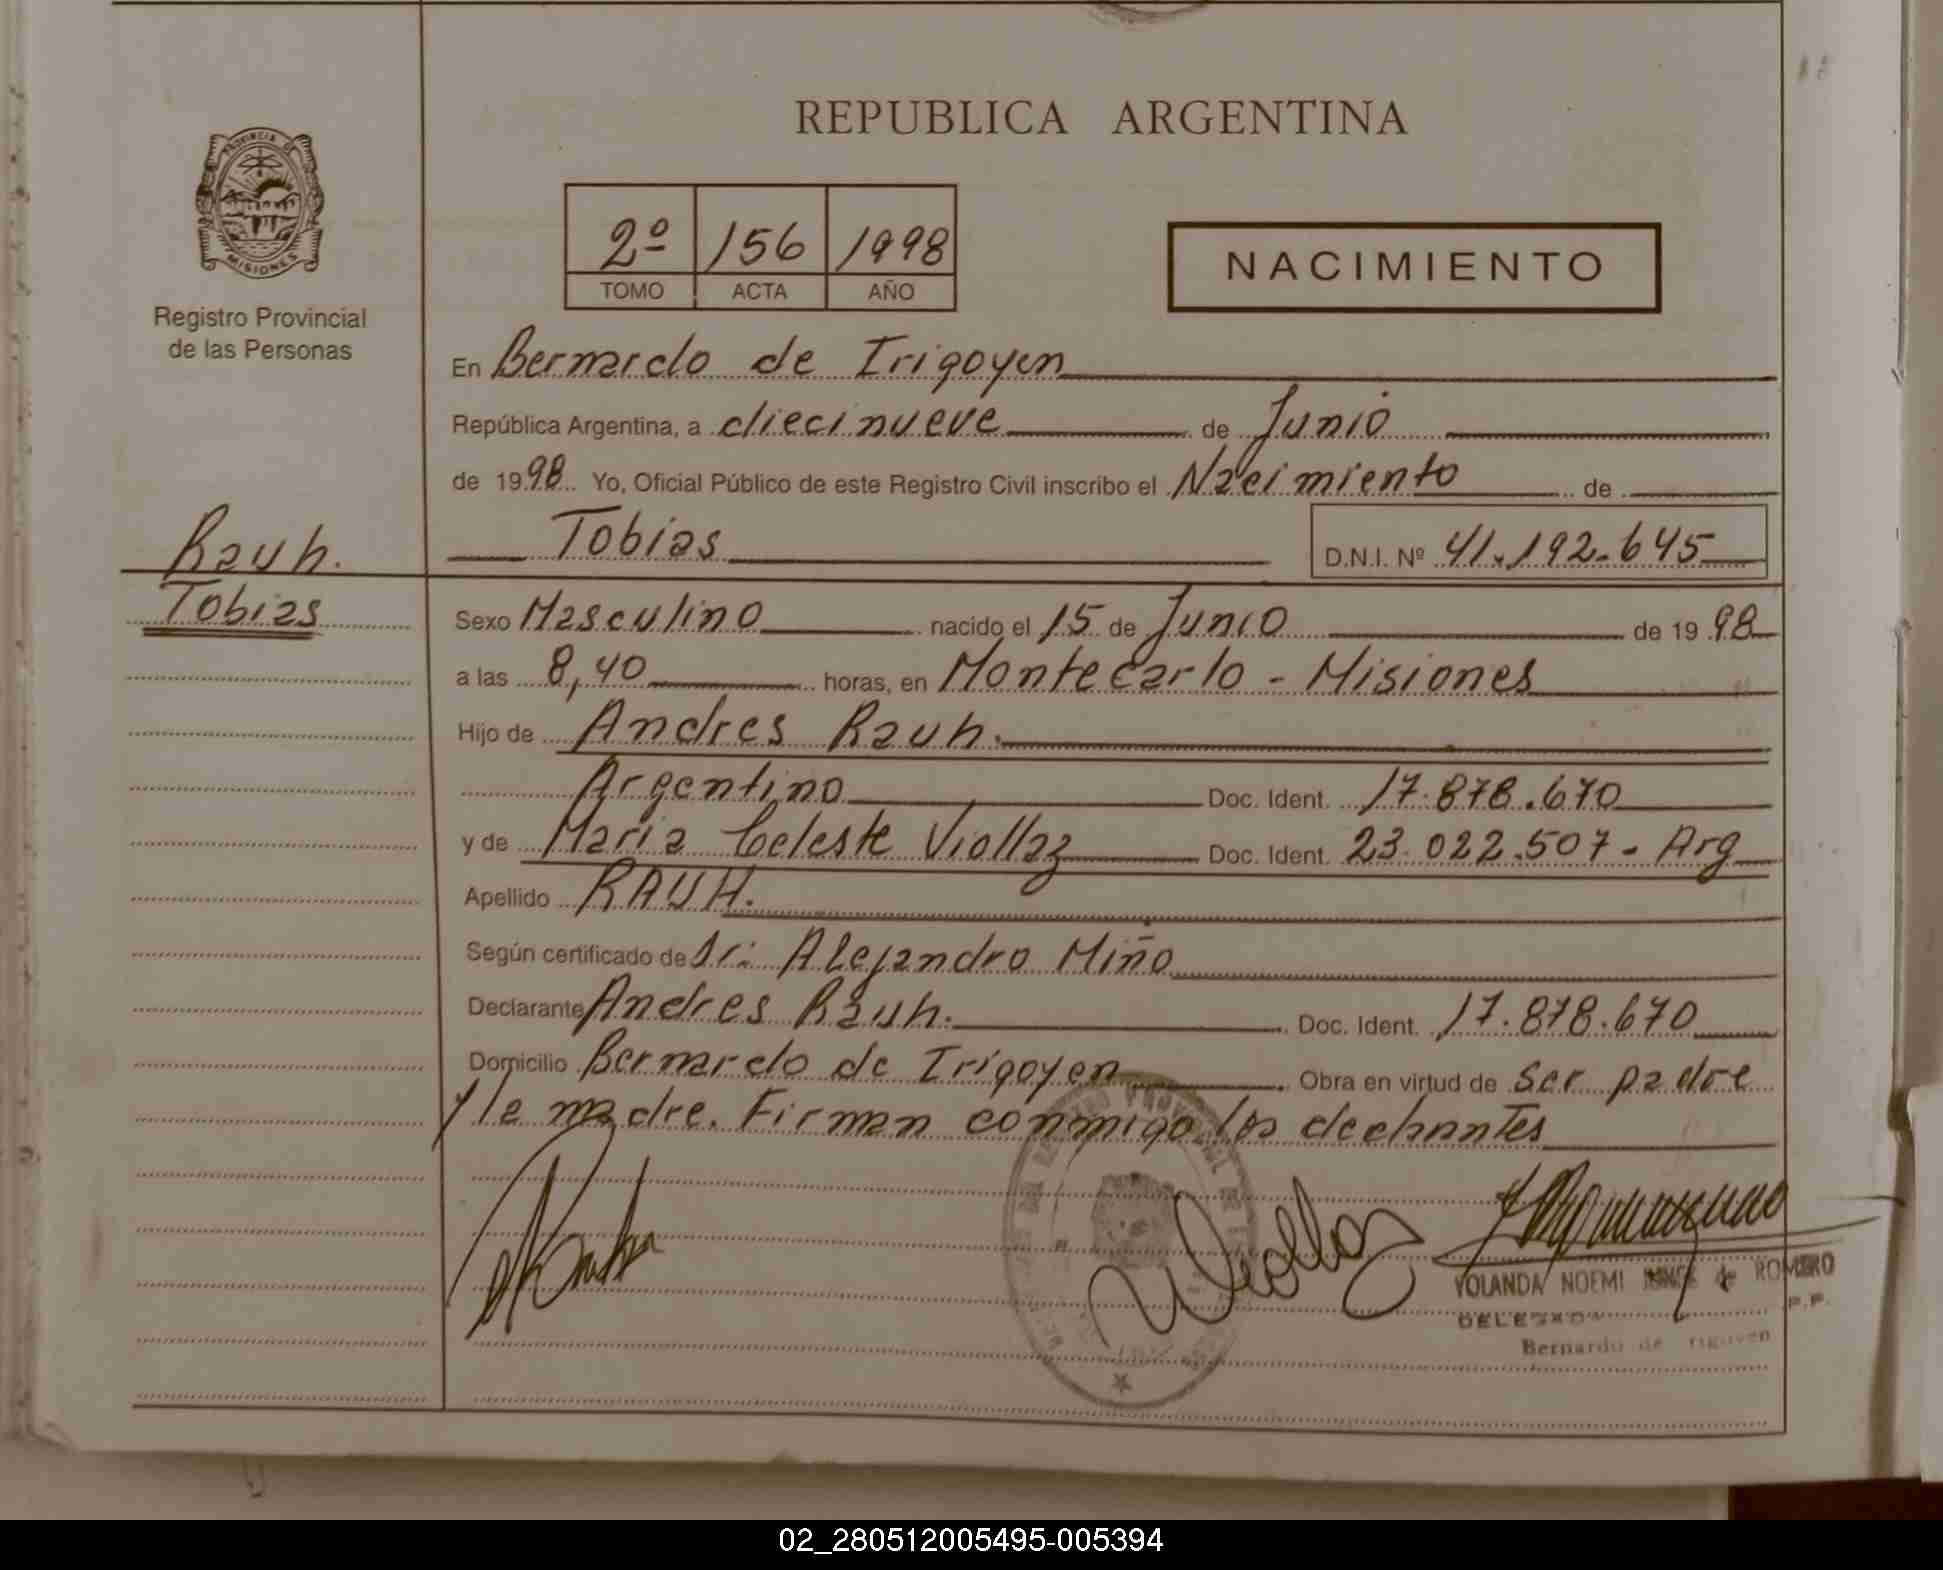 REPUBLICA ARGENTINA
PROVINCIA DE
MISIONES
Registro Provincial
de las Personas
2º 156 1998
TOMO ACTA AÑO
NACIMIENTO
En Bernardo de Irigoyen
República Argentina, a diecinueve de Junio
de 1998 Yo, Oficial Público de este Registro Civil inscribo el Nacimiento de
Tobias D.N.I. Nº 41.192.645
Rauh.
Tobias
Sexo Masculino nacido el 15 de Junio de 1998
a las 8,40 horas, en Montecarlo - Misiones
Hijo de Andres Rauh.
Argentino Doc. Ident. 17.878.670
y de Maria Celeste Viollaz Doc. Ident. 23.022.507 - Arg
Apellido RAUH.
Según certificado de Dr: Alejandro Miño
Declarante Andres Rauh. Doc. Ident. 17.878.670
Domicilio Bernardo de Irigoyen Obra en virtud de ser padre
y la madre. Firman conmigo los declarantes
Viollaz
YOLANDA NOEMI de ROMERO
DELEGADA
Bernardo de Irigoyen
02_280512005495-005394